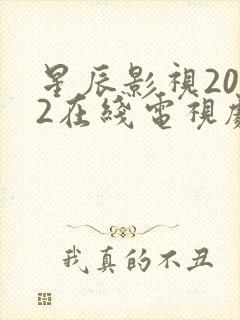 星辰影視20
2在綫電視劇
我真的不丑